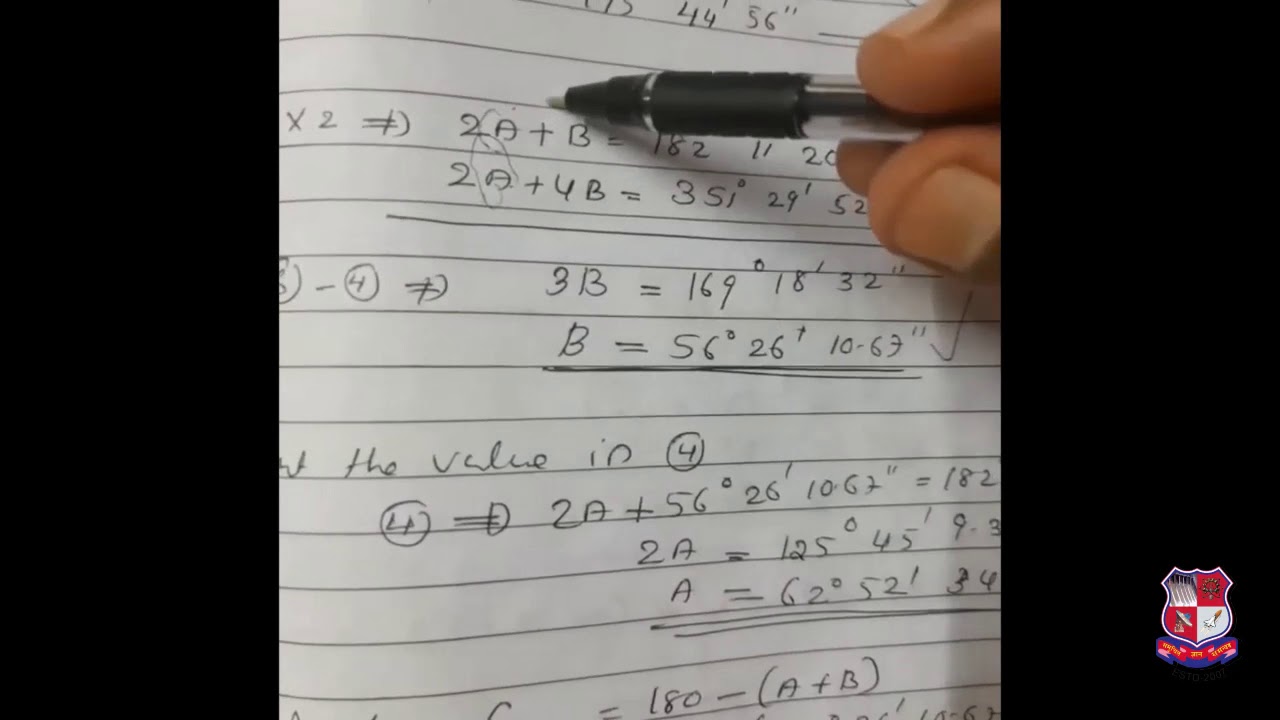 44' 56"
× 2 ⇒ 2A + B = 182 11 20
2A + 4B = 351° 29' 52
) - ④ ⇒ 3B = 169° 18' 32"
B = 56° 26' 10.67"
the value in ④
④ ⇒ 2A + 56° 26' 10.67" = 182
2A = 125° 45' 9.3
A = 62° 52' 34
= 180 - (A + B)
26' 10.67
ESTD-2007